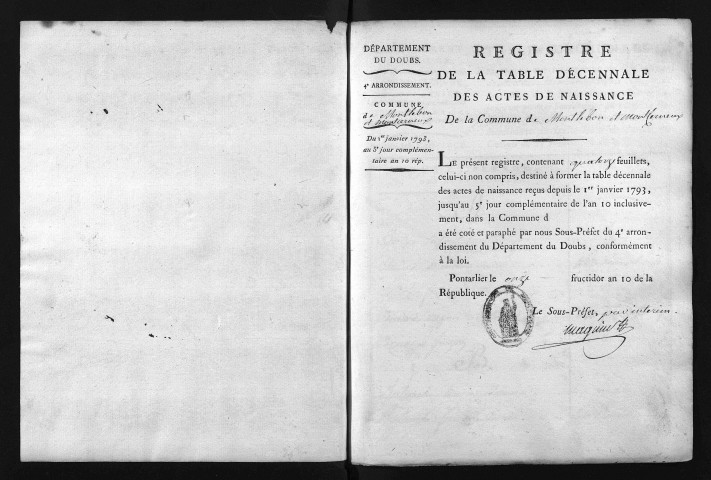 DÉPARTEMENT
DU DOUBS.
4e ARRONDISSEMENT.
COMMUNE
de Montlebon
et Montfourneux
Du 1er janvier 1793,
au 5e jour complémen-
taire an 10 rép.
REGISTRE
DE LA TABLE DÉCENNALE
DES ACTES DE NAISSANCE
De la Commune de Montlebon et
LE présent registre, contenant quatorze feuillets,
celui-ci non compris, destiné à former la table décennale
des actes de naissance reçus depuis le 1er janvier 1793,
jusqu'au 5e jour complémentaire de l'an 10 inclusive-
ment, dans la Commune d
a été coté et paraphé par nous Sous-Préfet du 4e arron-
dissement du Département du Doubs, conformément
à la loi.
Pontarlier le onze fructidor an 10 de la
République.
Le Sous-Préfet, par interim.